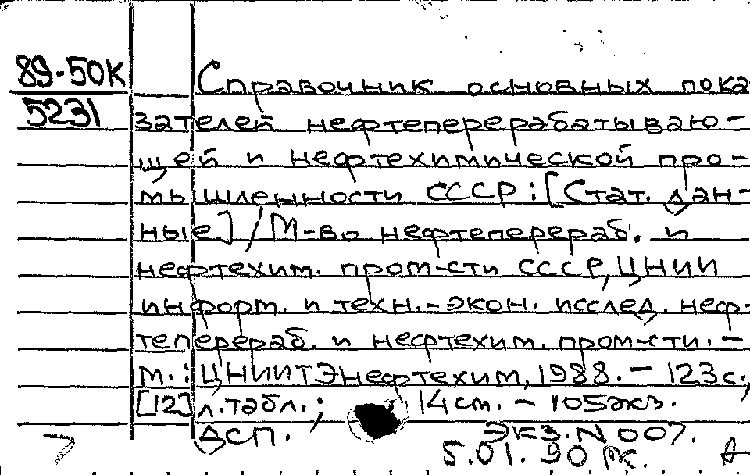 89-50К
5231
Справочник основных пока-
зателей нефтеперерабатываю-
щей и нефтехимической про-
мышленности СССР: [Стат. дан-
ные] / М-во нефтеперераб. и
нефтехим. пром-сти СССР, ЦНИИ
информ. и техн.-экон. исслед. неф-
теперераб. и нефтехим. пром-сти. -
М.: ЦНИИТЭнефтехим, 1988. - 123 с.,
[12] л. табл.; 14 см. - 105 экз.
ДСП. Экз. N 007.
5.01.90 РК.